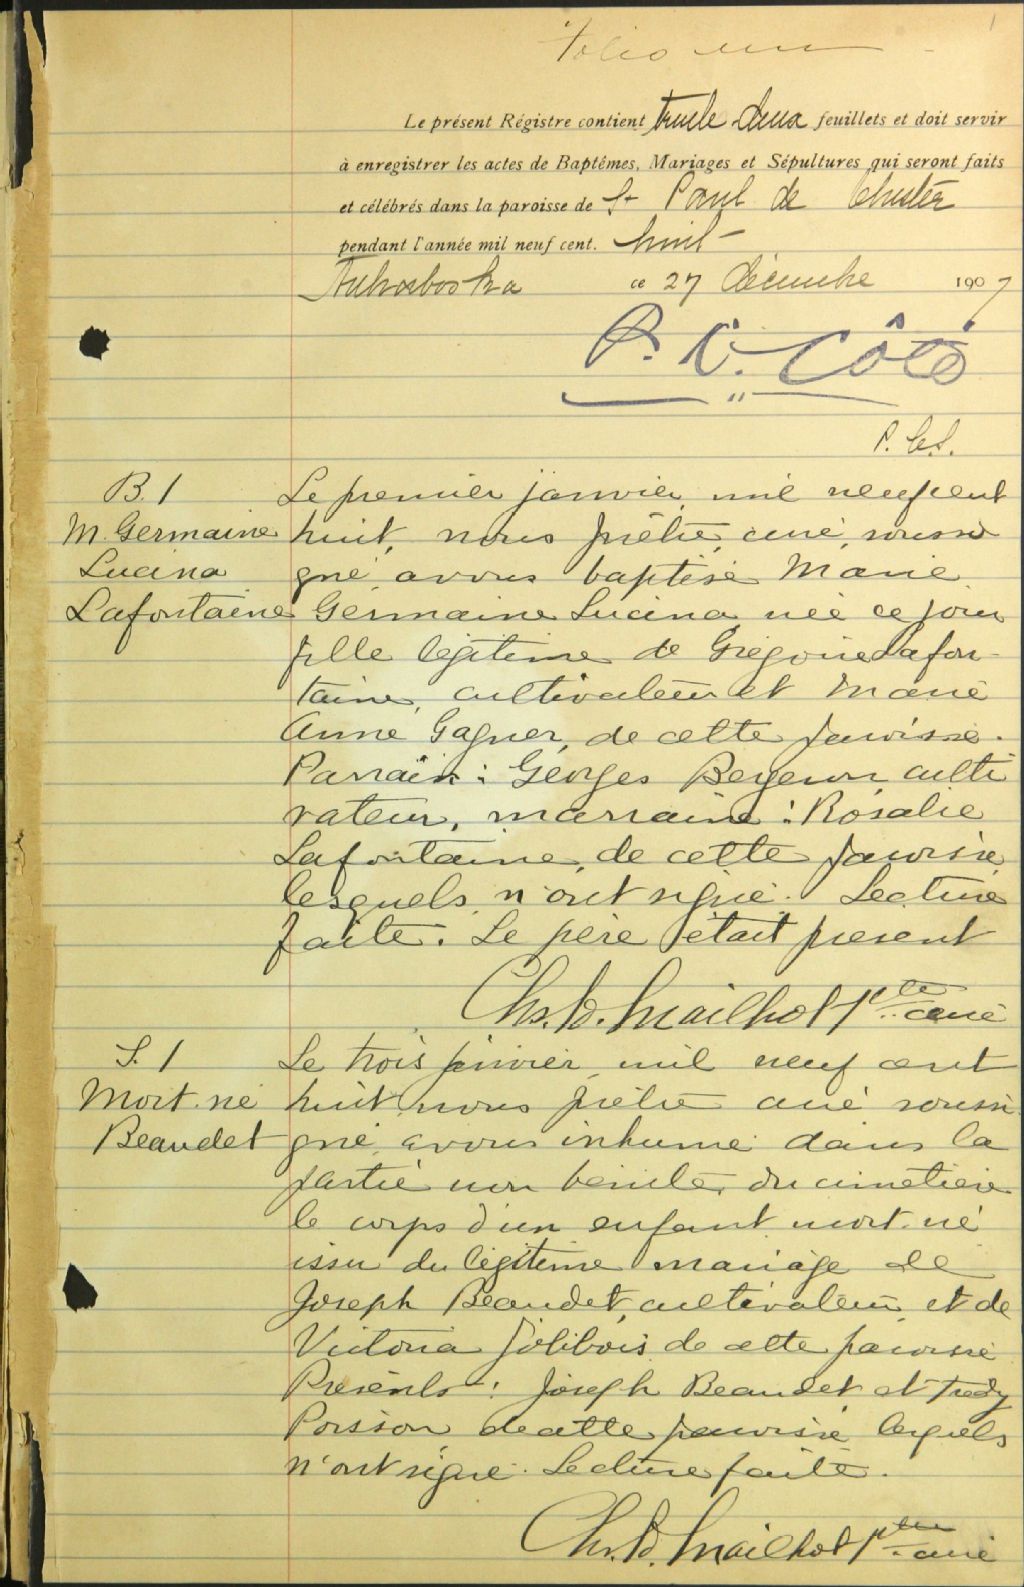 folio un
1
Le présent Régistre contient trente deux feuillets et doit servir
à enregistrer les actes de Baptêmes, Mariages et Sépultures qui seront faits
et célébrés dans la paroisse de St Paul de Chester
pendant l'année mil neuf cent. huit
Arthabaska ce 27 décembre 1907
P. C. Côté
P. C. S.
B. 1
M. Germaine
Lucina
Lafontaine
Le premier janvier mil neuf cent
huit, nous prêtre, curé, soussi
gné avons baptisé Marie
Germaine Lucina, née ce jour
fille légitime de Grégoire Lafon-
taine, cultivateur et Marie
Anne Gagner, de cette paroisse.
Parrain : Georges Bergeron, culti
vateur, marraine : Rosalie
Lafontaine, de cette paroisse
lesquels n'ont signé. Lecture
faite. Le père était présent
Chs. D. Mailhot Ptre curé
S. 1
Mort-né
Beaudet
Le trois janvier mil neuf cent
huit nous prêtre curé soussi
gné, avons inhumé dans la
partie non bénite du cimetière
le corps d'un enfant mort-né
issu du légitime mariage de
Joseph Beaudet, cultivateur, et de
Victoria Jolibois de cette paroisse
Présents : Joseph Beaudet et Fredy
Poisson de cette paroisse lesquels
n'ont signé. Lecture faite.
Chs. D. Mailhot Ptre curé